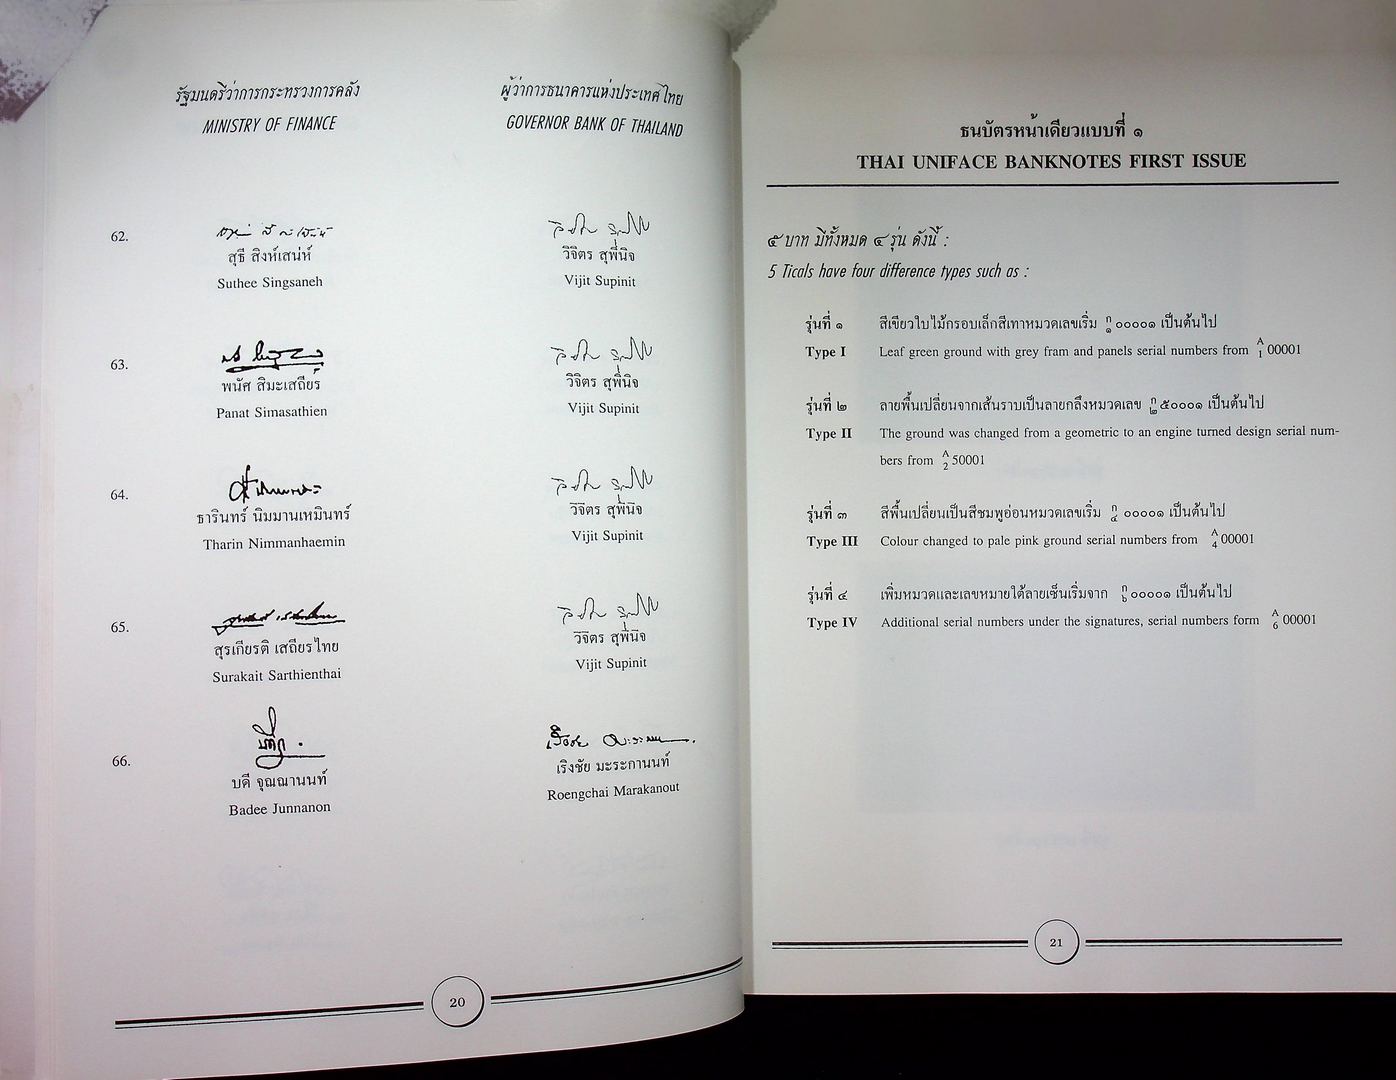 รัฐมนตรีว่าการกระทรวงการคลัง
MINISTRY OF FINANCE
ผู้ว่าการธนาคารแห่งประเทศไทย
GOVERNOR BANK OF THAILAND
62.
สุธี สิงห์เสน่ห์
Suthee Singsaneh
วิจิตร สุพินิจ
Vijit Supinit
63.
พนัศ สิมะเสถียร
Panat Simasathien
วิจิตร สุพินิจ
Vijit Supinit
64.
ธารินทร์ นิมมานเหมินทร์
Tharin Nimmanhaemin
วิจิตร สุพินิจ
Vijit Supinit
65.
สุรเกียรติ เสถียรไทย
Surakait Sarthienthai
วิจิตร สุพินิจ
Vijit Supinit
66.
บดี จุณณานนท์
Badee Junnanon
เริงชัย มะระกานนท์
Roengchai Marakanout
20
ธนบัตรหน้าเดียวแบบที่ ๑
THAI UNIFACE BANKNOTES FIRST ISSUE
๕ บาท มีทั้งหมด ๔ รุ่น ดังนี้ :
5 Ticals have four difference types such as :
รุ่นที่ ๑ สีเขียวใบไม้กรอบเล็กสีเทาหมวดเลขเริ่ม ก/๑ ๐๐๐๐๑ เป็นต้นไป
Type I Leaf green ground with grey fram and panels serial numbers from A/1 00001
รุ่นที่ ๒ ลายพื้นเปลี่ยนจากเส้นราบเป็นลายกลึงหมวดเลข ก/๒ ๕๐๐๐๑ เป็นต้นไป
Type II The ground was changed from a geometric to an engine turned design serial num-
bers from A/2 50001
รุ่นที่ ๓ สีพื้นเปลี่ยนเป็นสีชมพูอ่อนหมวดเลขเริ่ม ก/๔ ๐๐๐๐๑ เป็นต้นไป
Type III Colour changed to pale pink ground serial numbers from A/4 00001
รุ่นที่ ๔ เพิ่มหมวดและเลขหมายใต้ลายเซ็นเริ่มจาก ก/๖ ๐๐๐๐๑ เป็นต้นไป
Type IV Additional serial numbers under the signatures, serial numbers form A/6 00001
21